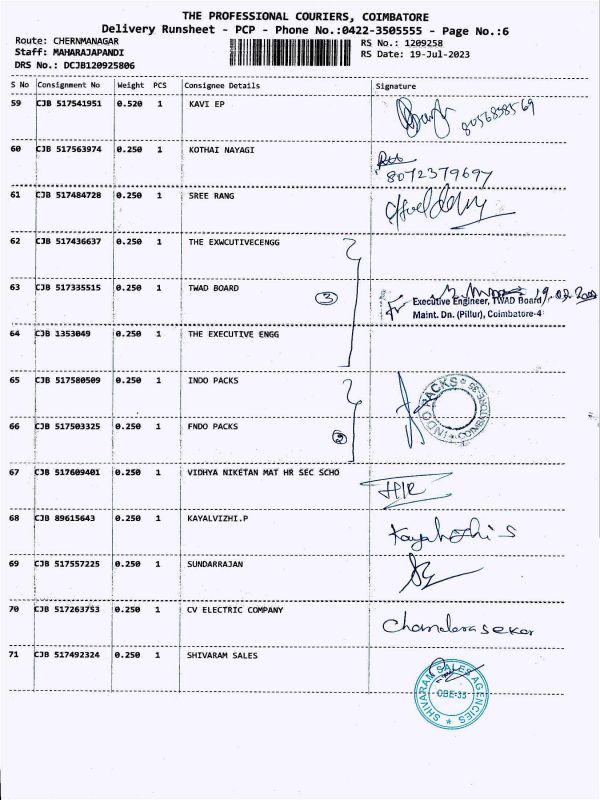 THE PROFESSIONAL COURIERS, COIMBATORE
Delivery Runsheet - PCP - Phone No.:0422-3505555 - Page No.:6
Route: CHERNMANAGAR
RS No.: 1209258
Staff: MAHARAJAPANDI
RS Date: 19-Jul-2023
DRS No.: DCJB120925806
S No Consignment No Weight PCS Consignee Details Signature
59 CJB 517541951 0.520 1 KAVI EP 8056838569
60 CJB 517563974 0.250 1 KOTHAI NAYAGI 8072379697
61 CJB 517484728 0.250 1 SREE RANG
62 CJB 517436637 0.250 1 THE EXWCUTIVECENGG
63 CJB 517335515 0.250 1 TWAD BOARD 3
Executive Engineer, TWAD Board
Maint. Dn. (Pillur), Coimbatore-4
64 CJB 1353049 0.250 1 THE EXECUTIVE ENGG
65 CJB 517580509 0.250 1 INDO PACKS
INDO PACKS COIMBATORE-35
66 CJB 517503325 0.250 1 FNDO PACKS 2
67 CJB 517609401 0.250 1 VIDHYA NIKETAN MAT HR SEC SCHO
68 CJB 89615643 0.250 1 KAYALVIZHI.P
69 CJB 517557225 0.250 1 SUNDARRAJAN
70 CJB 517263753 0.250 1 CV ELECTRIC COMPANY Chanderasekar
71 CJB 517492324 0.250 1 SHIVARAM SALES
SHIVARAM SALES AGENCIES
CBE-35